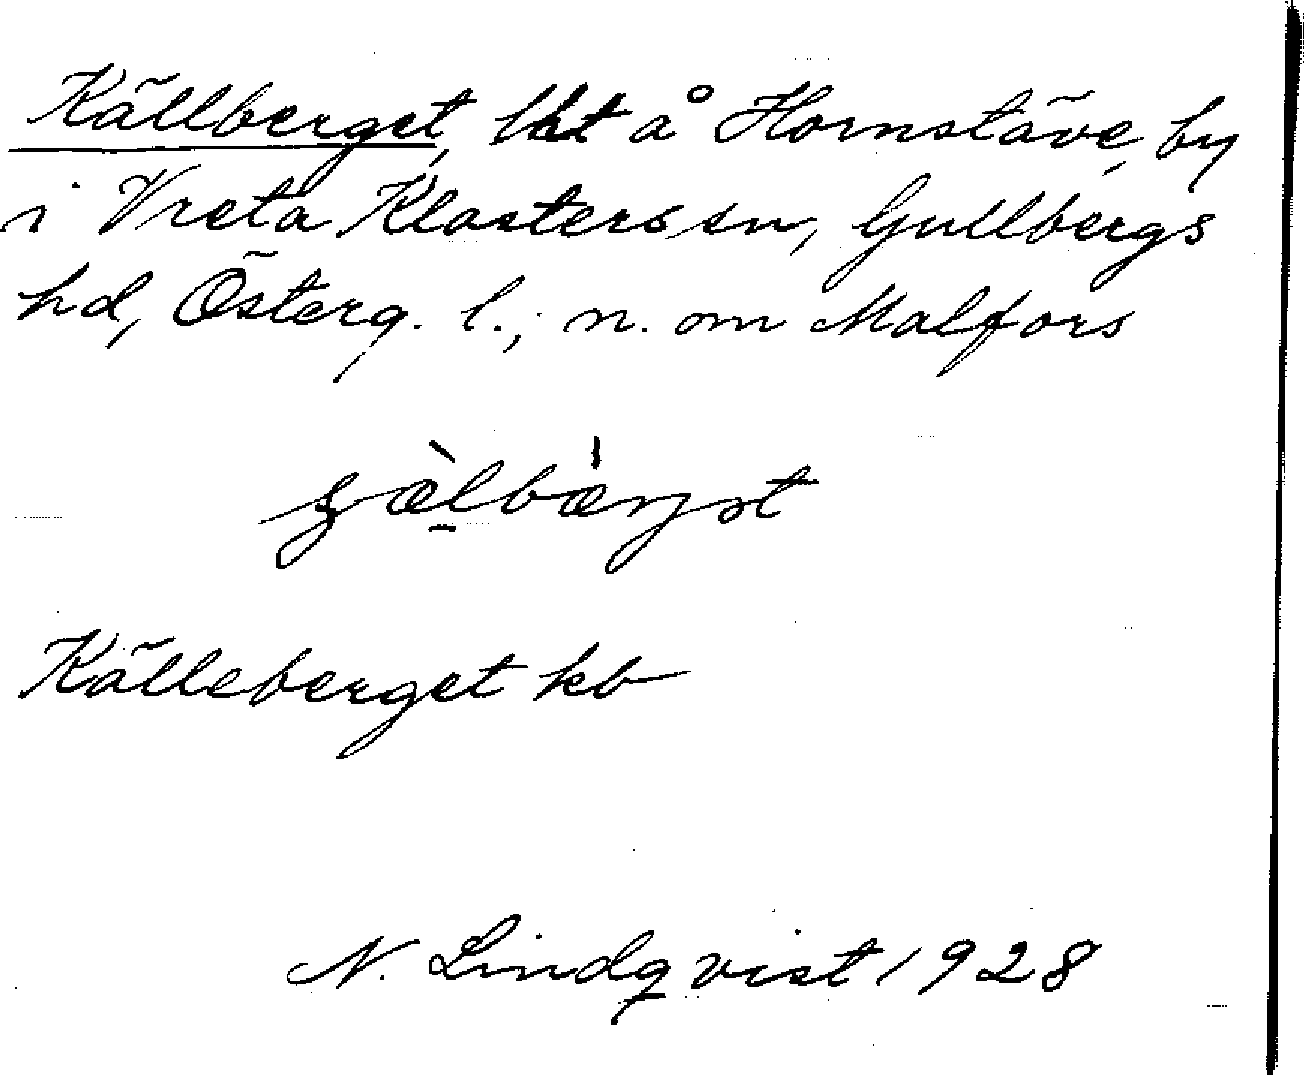 Källberget, lht å Hornstäve, by
i Vreta Klosters sn, Gullbergs
hd, Österg. l.; n. om Malfors
Källeberget kb
N. Lindqvist 1928